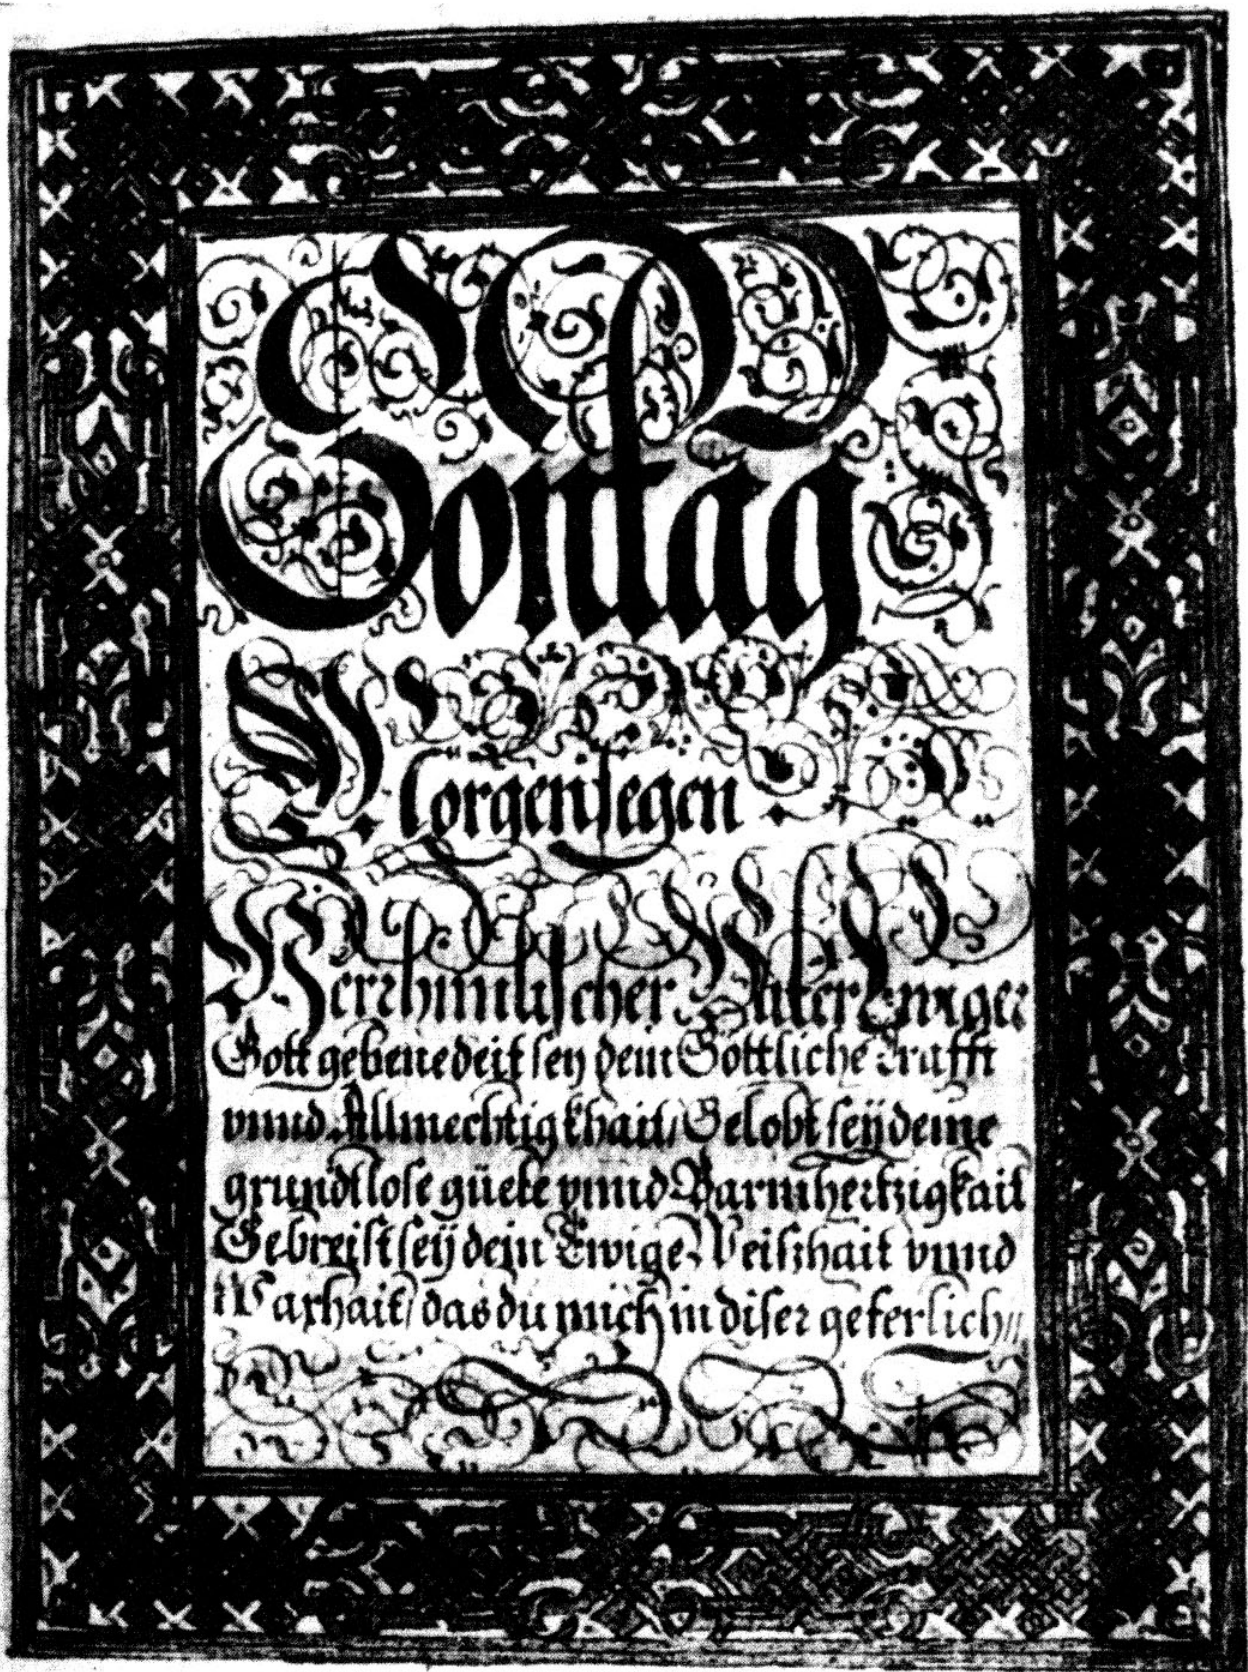 Sontag
Morgensegen
Herr himlischer Vater Ewiger
Gott gebenedeit sey dein Göttliche Krafft
vnnd Allmechtigkhait/ Gelobt seÿ deine
grundtlose güete vnnd Barmhertzigkait
Gebreist seÿ dein Ewige Weißhait vnnd
Warhait/ das du mich in diser geferlich//